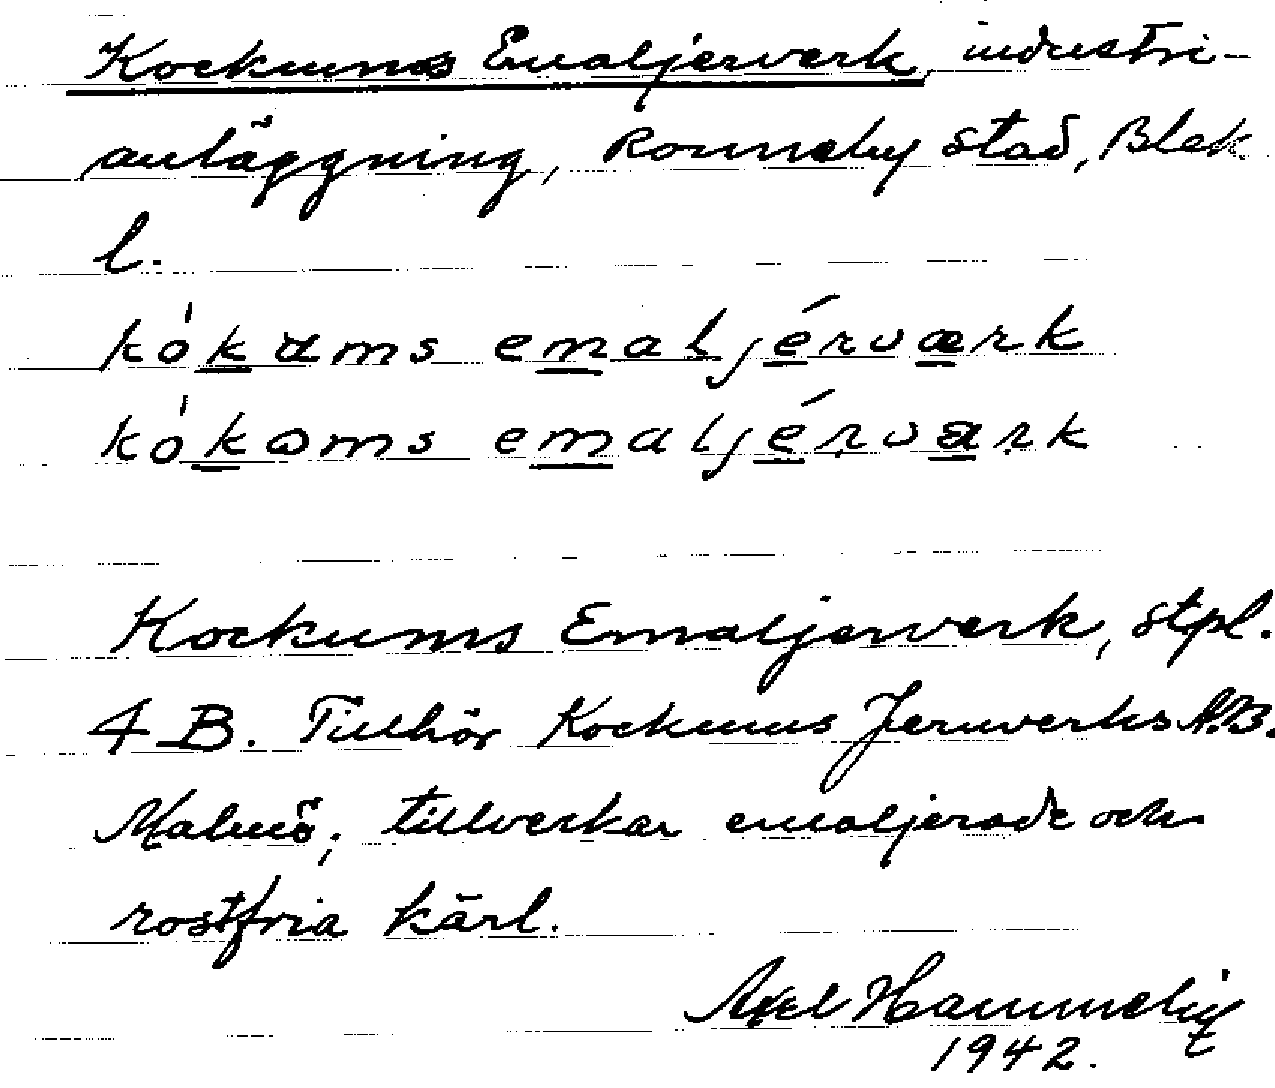 Kockums Emaljerverk, industri-
anläggning, Ronneby stad, Blek.
l.
kókums emaljérværk
kókoms emaljérværk
Kockums Emaljerverk, stpl.
4 B. Tillhör Kockums Jernverks A.B.
Malmö; tillverkar emaljerade och
rostfria kärl.
Axel Hammelig
1942.